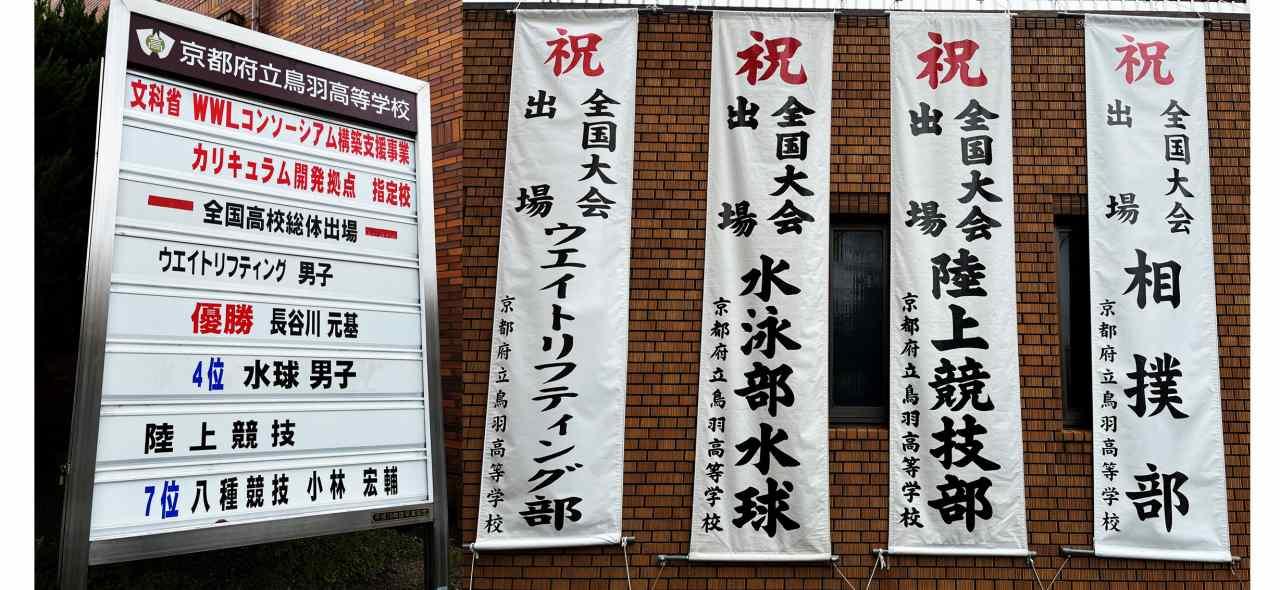 京都府立鳥羽高等学校
文科省 WWLコンソーシアム構築支援事業
カリキュラム開発拠点 指定校
全国高校総体出場
ウエイトリフティング 男子
優勝 長谷川 元基
4位 水球 男子
陸上競技
7位 八種競技 小林 宏輔
祝
全国大会
出場
ウエイトリフティング部
京都府立鳥羽高等学校
祝
全国大会
出場
水泳部水球
京都府立鳥羽高等学校
祝
全国大会
出場
陸上競技部
京都府立鳥羽高等学校
祝
全国大会
出場
相撲部
京都府立鳥羽高等学校